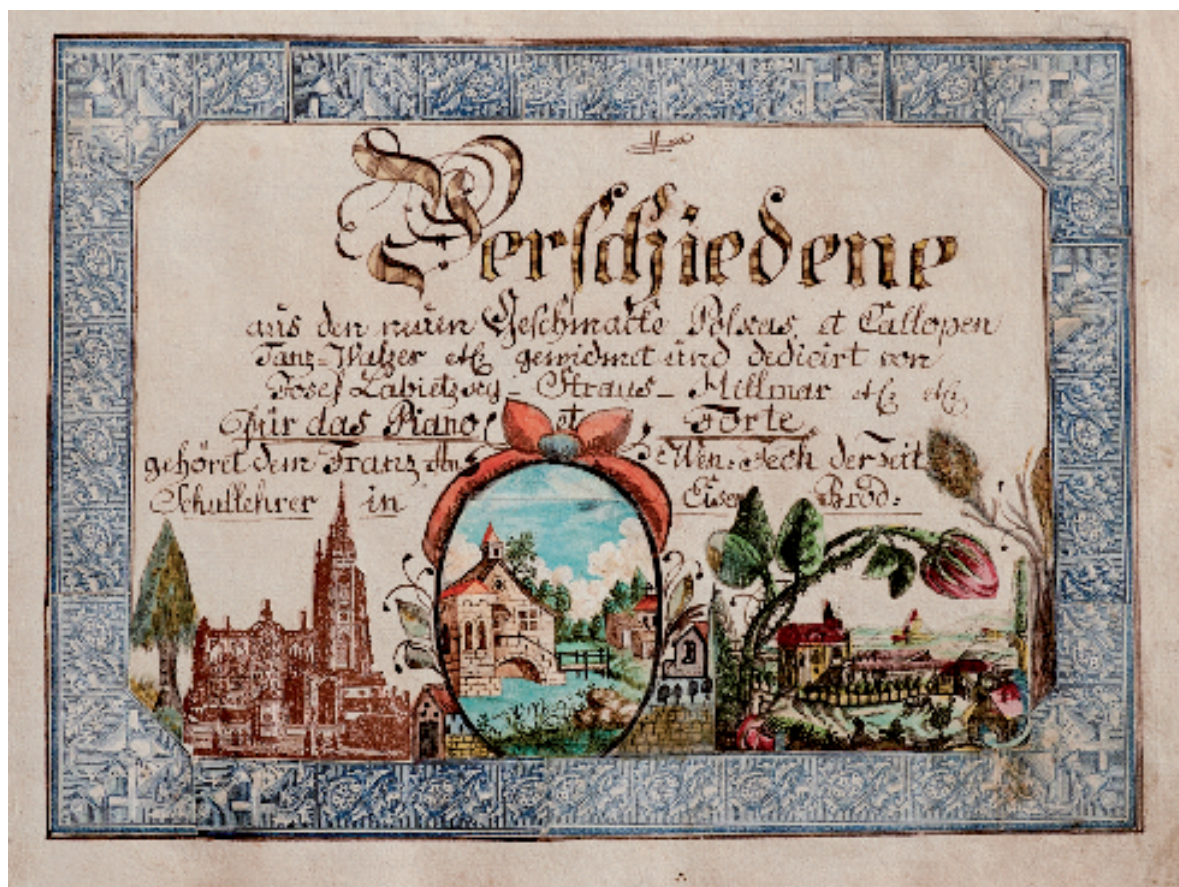 Verschiedene
aus den neuen Geschmacke Polkas et Gallopen
Tanz=Walzer etc gewidmet und dedicirt von
Josef Labietzkÿ – Straus – Millmar etc etc
für das Piano et Forte
gehöret dem Franz Wen. Pech der Zeit
Schullehrer in Eisen Brod: